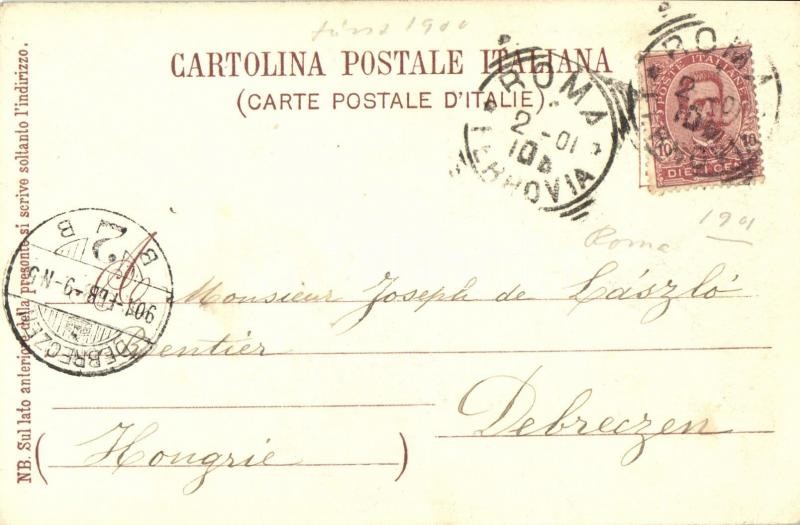 CARTOLINA POSTALE ITALIANA
(CARTE POSTALE D'ITALIE)
ROMA
2-01
FERROVIA
ROMA
POSTE ITALIANE
10 10
DIECI CENT
1901
Roma
Monsieur Joseph de László
Rentier
Debreczen
(Hongrie)
DEBRECZEN
901 FEB -9-N5
B 2 B
NB. Sul lato anteriore della presente si scrive soltanto l'indirizzo.